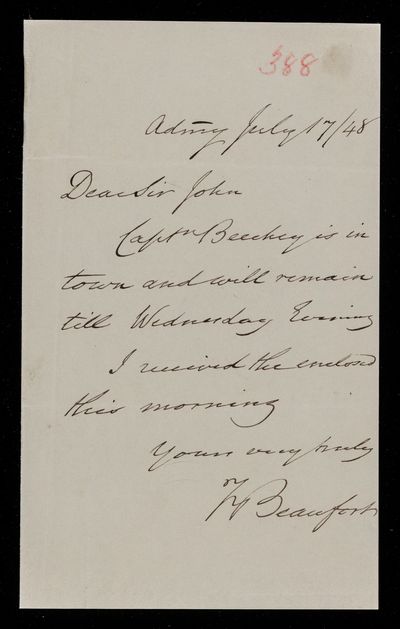 388
Admy July 17/48
Dear Sir John
Captn Beechey is in
town and will remain
till Wednesday Evening
I received the enclosed
this morning
Yours very truly
F Beaufort